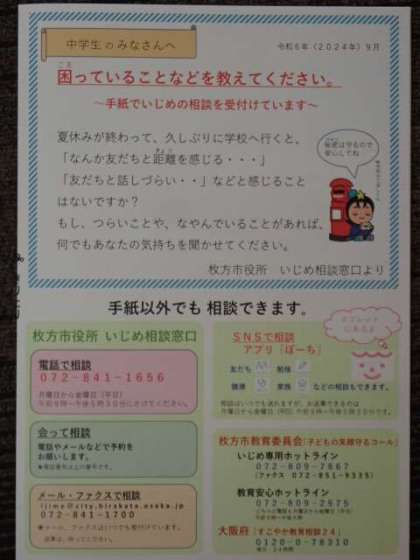 中学生のみなさんへ
令和6年（2024年）9月
困っていることなどを教えてください。
～手紙でいじめの相談を受付けています～
夏休みが終わって、久しぶりに学校へ行くと、
「なんか友だちと距離を感じる・・・」
「友だちと話しづらい・・」などと感じること
はないですか？
もし、つらいことや、なやんでいることがあれば、
何でもあなたの気持ちを聞かせてください。
枚方市役所 いじめ相談窓口より
秘密は守るので
安心してね
手紙以外でも 相談できます。
枚方市役所 いじめ相談窓口
電話で相談
072-841-1656
月曜日から金曜日（平日）
会って相談
電話やメールなどで予約を
お願いします。
メール・ファクスで相談
ijime@city.hirakata.osaka.jp
072-841-1700
SNSで相談
アプリ「ぽーち」
タブレット
にあるよ
友だち
勉強
健康
家族
などの相談もできます。
枚方市教育委員会（子どもの笑顔守るコール）
いじめ専用ホットライン
072-809-7867
教育安心ホットライン
072-809-2975
大阪府「すこやか教育相談24」
0120-0-78310